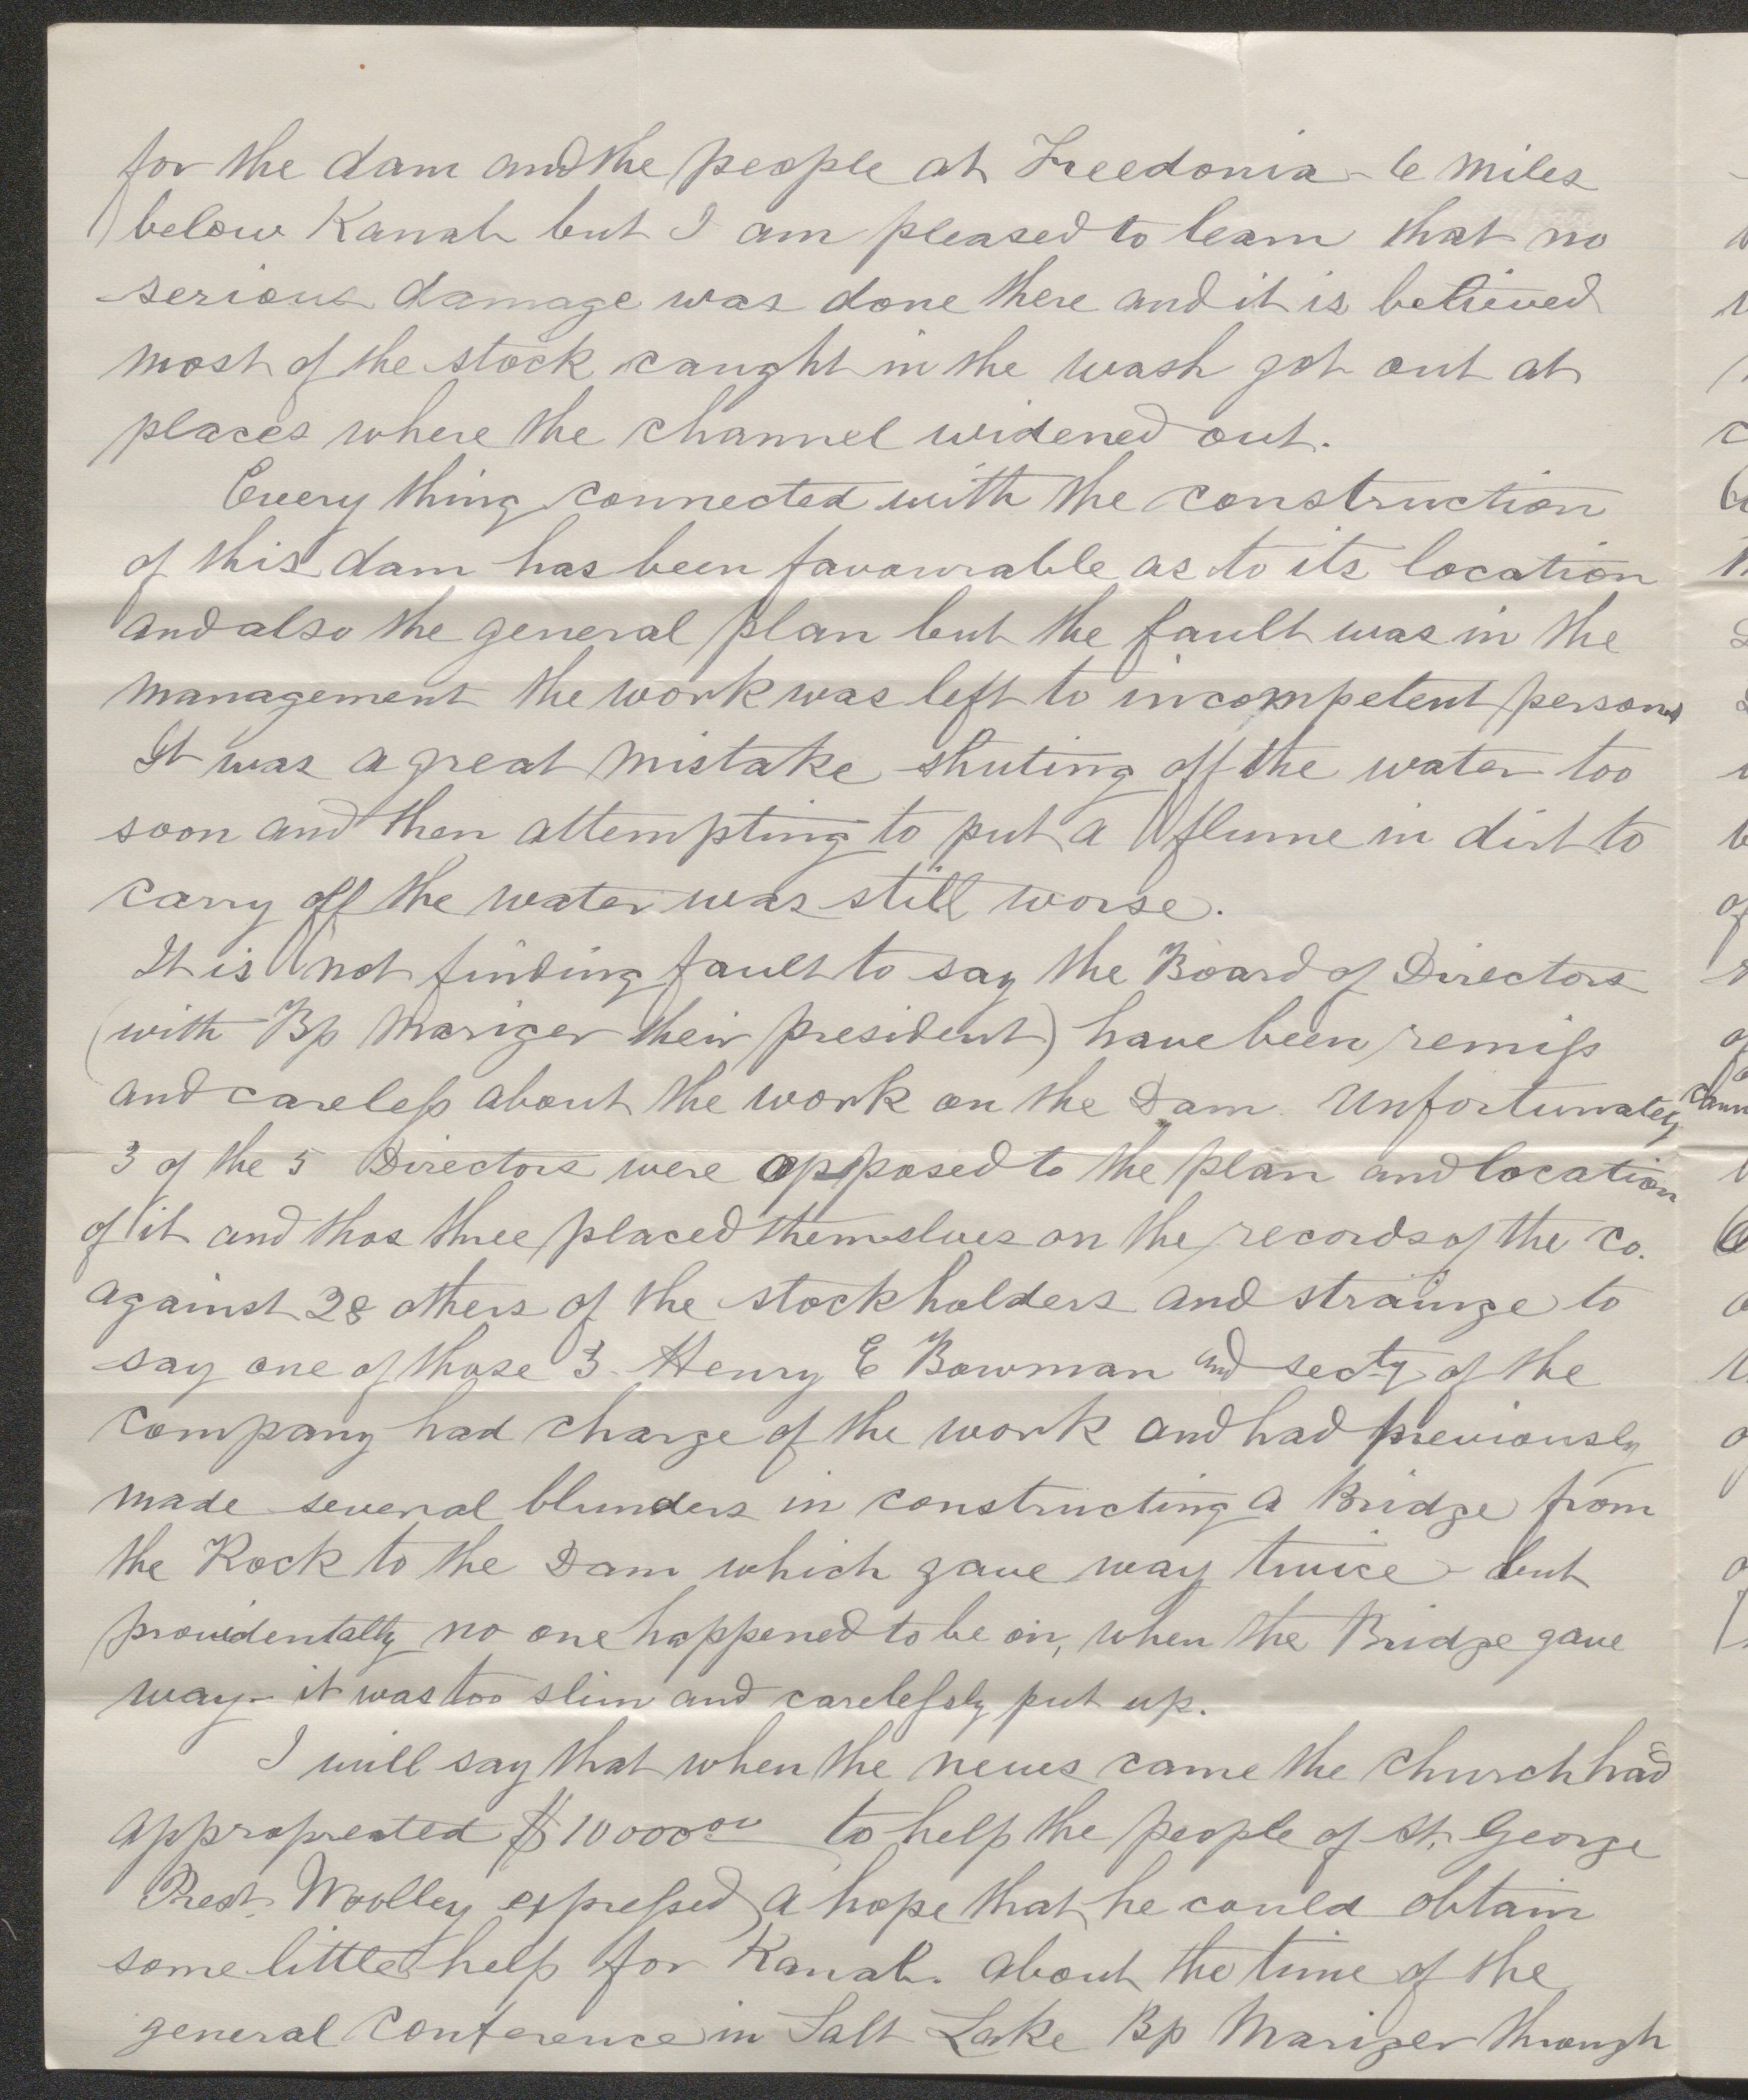 for the dam and the people at Freedonia - 6 miles
below Kanab but I am pleased to learn that no
serious damage was done there and it is believed
most of the stock caught in the wash got out at
places where the channel widened out.
Every thing connected with the construction
of this dam has been favourable as to its location
and also the general plan but the fault was in the
management the work was left to incompetent persons
It was a great mistake shuting off the water too
soon and then attempting to put a flume in dirt to
carry off the water was still worse.
It is not finding fault to say the Board of Directors
(with Bp Mariger their president) have been remiss
and careless about the work on the Dam. Unfortunately
3 of the 5 Directors were opposed to the plan and location
of it and thos three placed themslves on the records of the co.
against 28 others of the stockholders and strainge to
say one of those 3. Henry E Bowman and secty of the
company had charge of the work and had previously
made several blunders in constructing a Bridge from
the Rock to the Dam which gave way twice - but
providentally no one happened to be on, when the Bridge gave
way - it was too slim and carelessly put up.
I will say that when the news came the church had
appropreated $10000.00 to help the people of St. George
Prest. Woolley expressed a hope that he could obtain
some little help for Kanab. about the time of the
general conference in Salt Lake Bp Mariger through